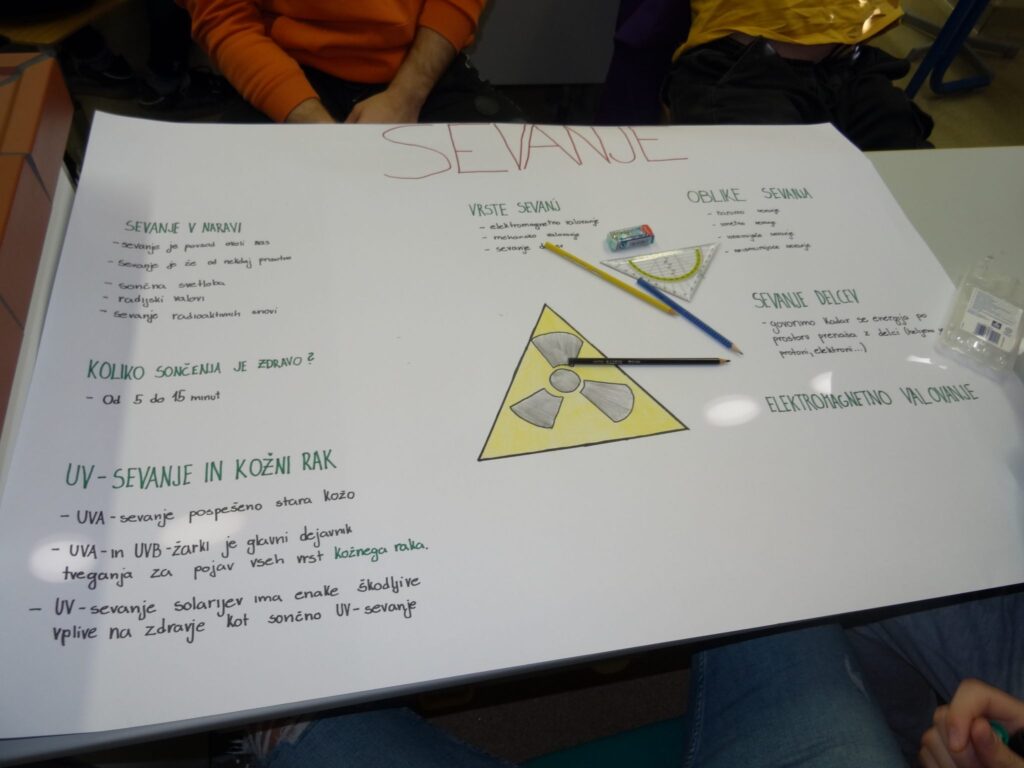 SEVANJE
SEVANJE V NARAVI
- sevanje je povsod okoli nas
- sevanje je že od nekdaj prisotno
- sončna svetloba
- radijski valovi
- sevanje radioaktivnih snovi
KOLIKO SONČENJA JE ZDRAVO?
- Od 5 do 15 minut
UV-SEVANJE IN KOŽNI RAK
- UVA-sevanje pospešeno stara kožo
- UVA-in UVB-žarki je glavni dejavnik
tveganja za pojav vseh vrst kožnega raka.
- UV-sevanje solarijev ima enake škodljive
vplive na zdravje kot sončno UV-sevanje
VRSTE SEVANJ
- elektromagnetno valovanje
- mehansko valovanje
- sevanje
OBLIKE SEVANJA
- naravno sevanje
- umetno sevanje
- ionizirajoče sevanje
- neionizirajoče sevanje
SEVANJE DELCEV
- govorimo kadar se energija po
prostoru prenaša z delci (helijevi
protoni, elektroni...)
ELEKTROMAGNETNO VALOVANJE